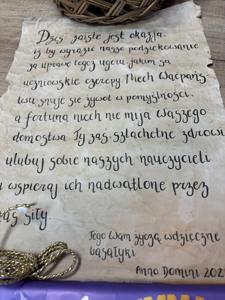 Dziś zaiste jest okazja.
iż by wyrazić nasze podziękowanie
za uprawę tegoż ugoru, jakim są
uczniowskie czerepy. Niech Waćpań-
stwu snuje się żywot w pomyślności,
a fortuna niech nie mija Waszego
domostwa. Ty zaś, szlachetne zdrowie
ulubuj sobie naszych nauczycieli
i wspieraj ich nadwątlone przez
żaków siły
Tego Wam życzą wdzięczne
basałyki
Anno Domini 202